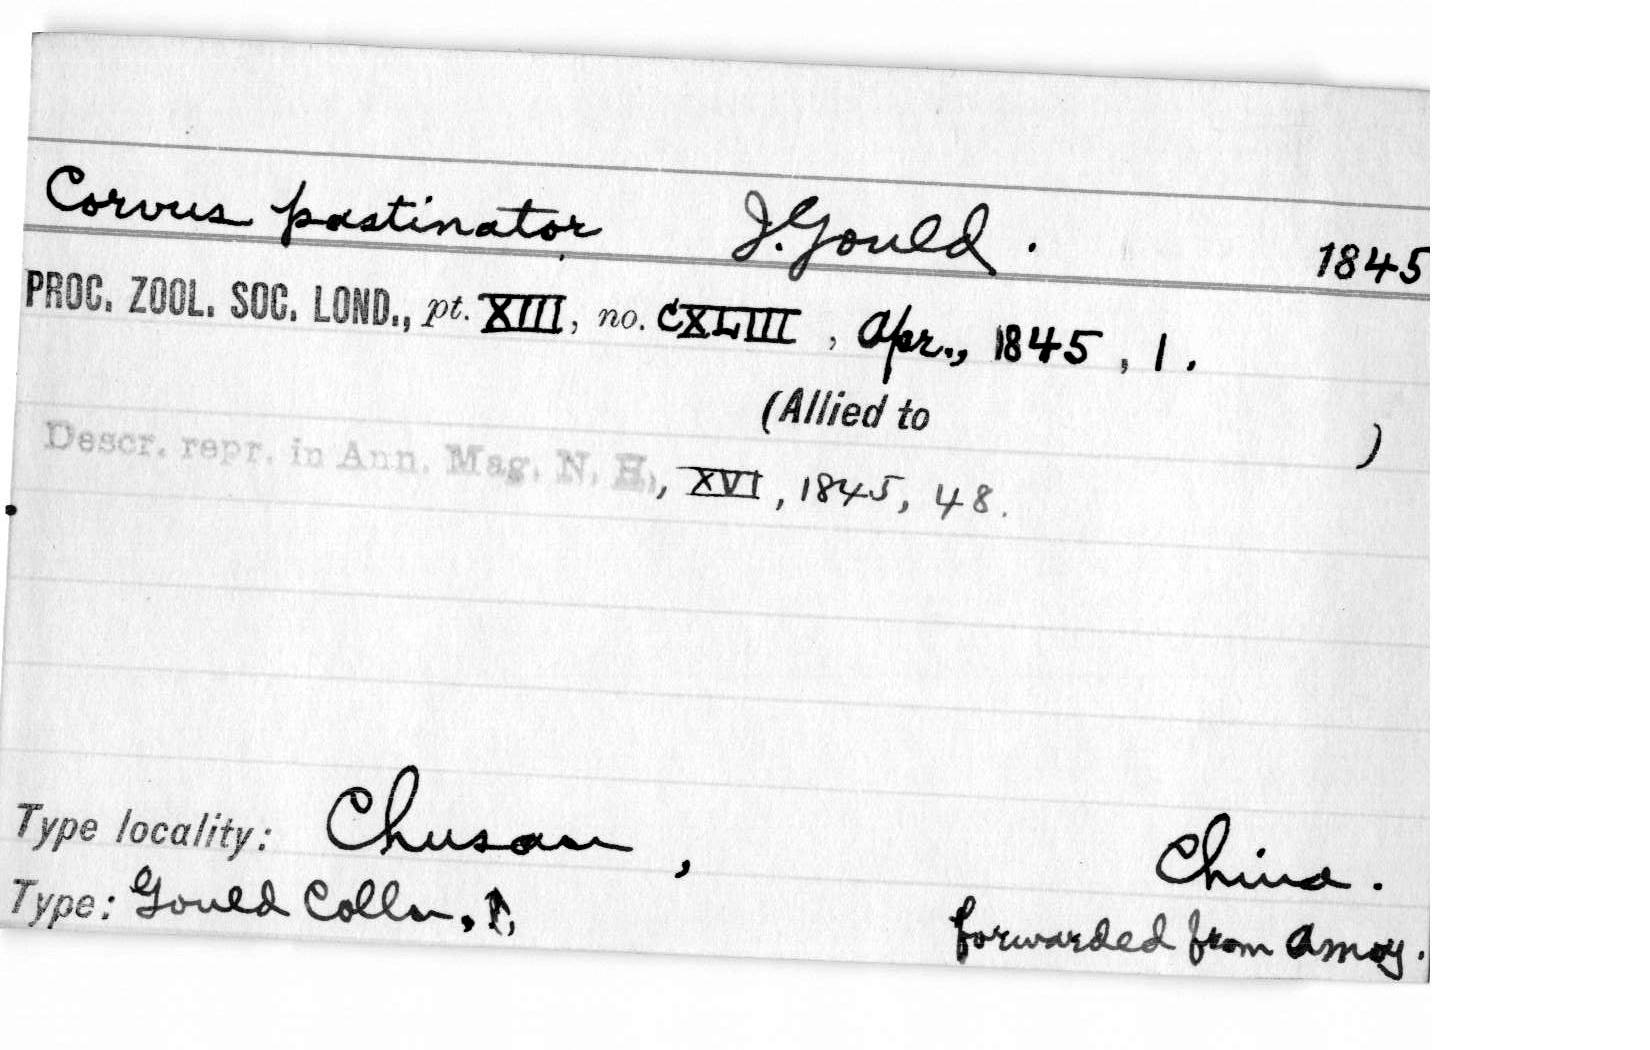 Corvus pastinator J. Gould. 1845
PROC. ZOOL. SOC. LOND., pt. XIII, no. CXLIII, Apr., 1845, 1.
(Allied to )
Descr. repr. in Ann. Mag. N. H., XVI, 1845, 48.
Type locality: Chusan, China.
Type: Gould Colln.,
forwarded from Amoy.